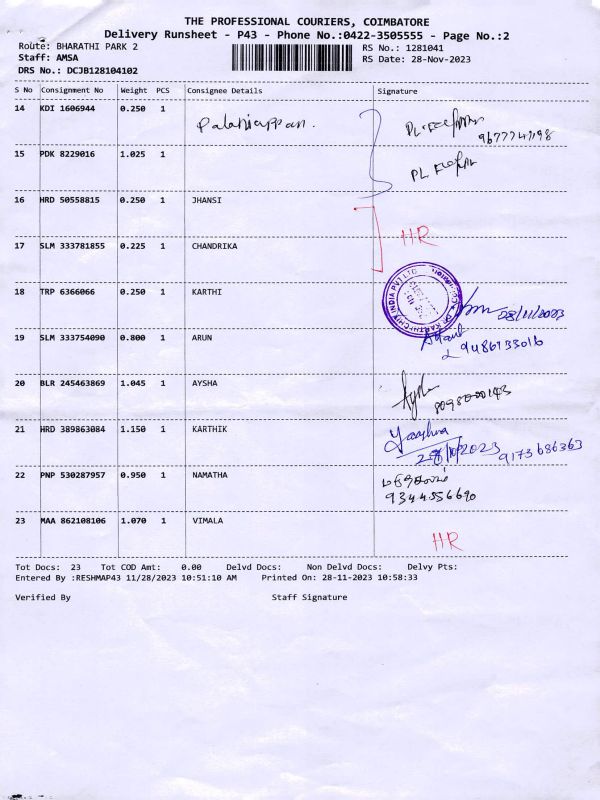 THE PROFESSIONAL COURIERS, COIMBATORE
Delivery Runsheet - P43 - Phone No.:0422-3505555 - Page No.:2
Route: BHARATHI PARK 2 RS No.: 1281041
Staff: AMSA RS Date: 28-Nov-2023
DRS No.: DCJB128104102
S No Consignment No Weight PCS Consignee Details Signature
14 KDI 1606944 0.250 1 Palaniappan.
15 PDK 8229016 1.025 1 PL
16 HRD 50558815 0.250 1 JHANSI
HR
17 SLM 333781855 0.225 1 CHANDRIKA
18 TRP 6366066 0.250 1 KARTHI 28/11/2023
19 SLM 333754090 0.800 1 ARUN
9486733016
20 BLR 245463869 1.045 1 AYSHA
21 HRD 389863084 1.150 1 KARTHIK
9173686363
22 PNP 530287957 0.950 1 NAMATHA
9344556690
23 MAA 862108106 1.070 1 VIMALA
HR
Tot Docs: 23 Tot COD Amt: 0.00 Delvd Docs: Non Delvd Docs: Delvy Pts:
Entered By :RESHMAP43 11/28/2023 10:51:10 AM Printed On: 28-11-2023 10:58:33
Verified By Staff Signature